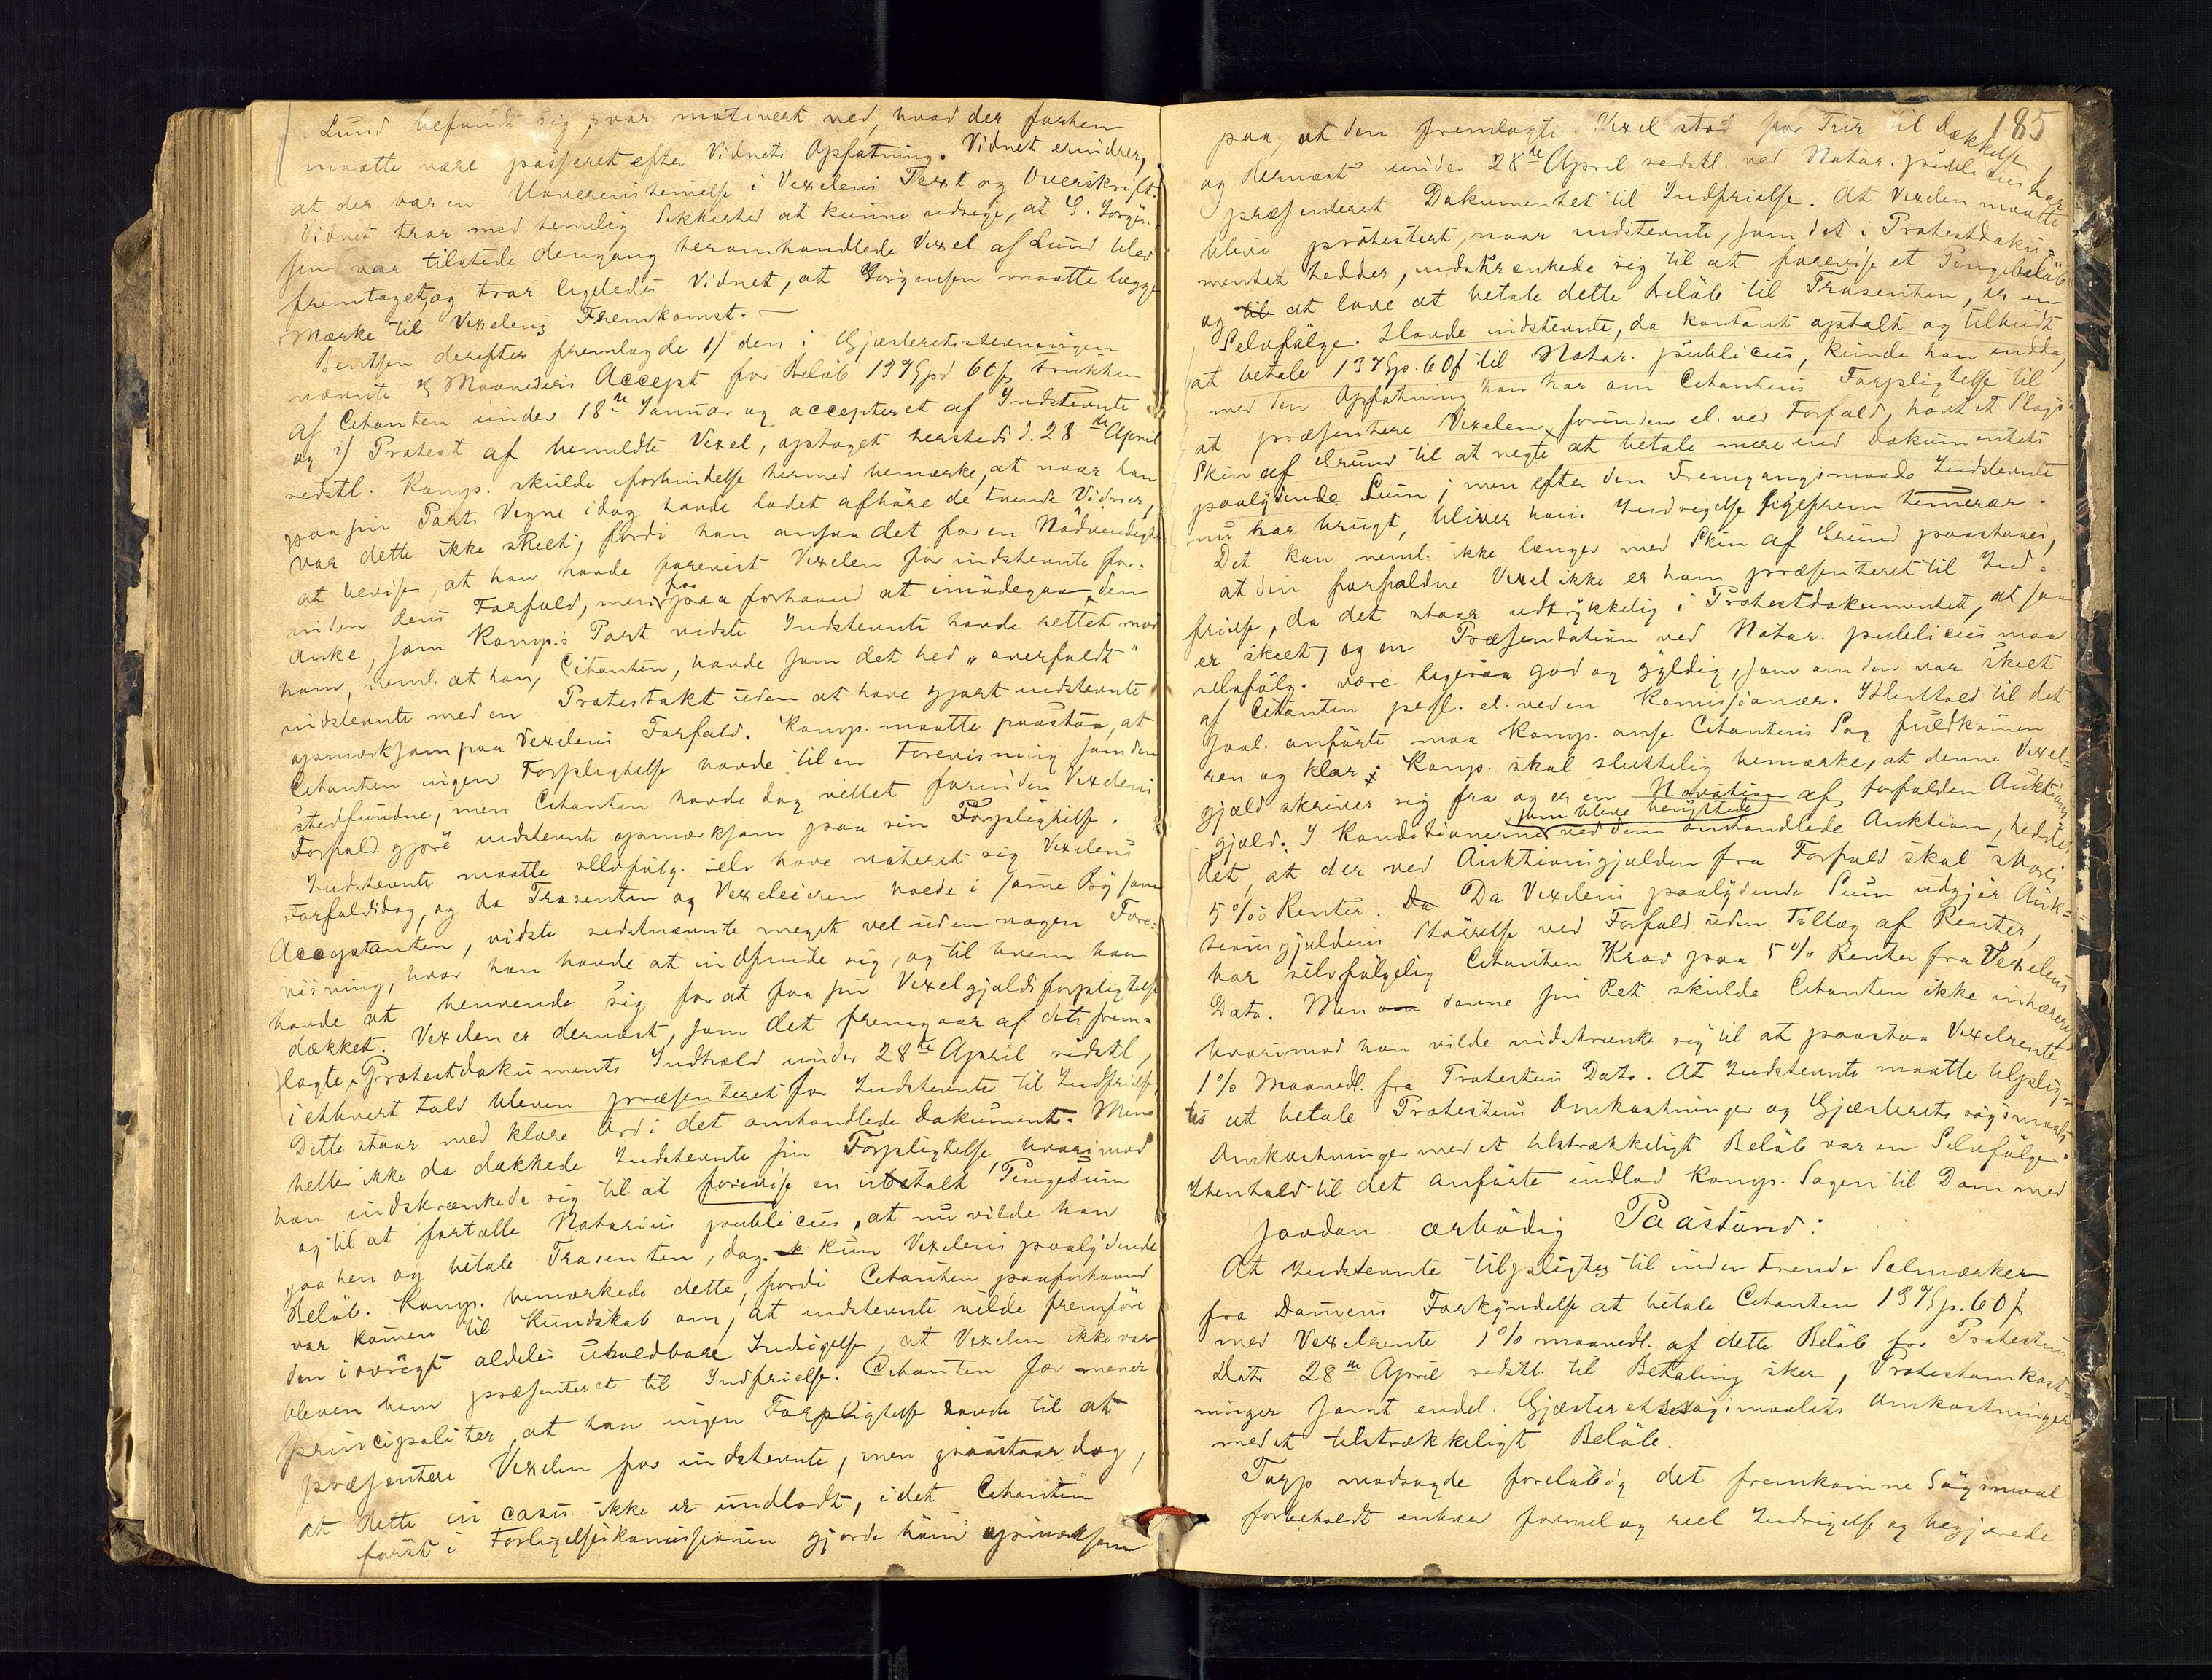 Lund befandt sig, var motivert ved, hvad der forhen
maatte være passeret efter Vidnets Opfatning. Vidnet erindrer,
at der var en Uoverenstemelse i Vexelens Text og Overskrift.
Vidnet tror med temelig Sikkerhed at kunne udsige, at G. Jørgen-
sen var tilstede dengang heromhandlede Vexel af Lund blev
fremtaget, og tror ligeledes Vidnet, at Jørgensen maatte lægge
Mærke til Vexelens Fremkomst. —
Bentsen derefter fremlagde 1/ den i Gjæsteretsstevningen
nævnte 3 Maaneders Accept for Beløb 137 Spd 60 ß trukken
af Citanten under 18de Januar og accepteret af Indstevnte
og 2/ Protest af bemeldte Vexel, optaget hersteds d. 28de April
sidstl. Komp. skulde i forbindelse hermed bemærke, at naar han
paa sin Parts Vegne idag havde ladet afhøre de tvende Vidner,
var dette ikke skeet, fordi han ansaa det for en Nødvendighed
at bevise, at han havde forevist Vexelen for indstevnte for-
inden dens Forfald, men for paa forhaand at imødegaa den
Anke, som Komp.s Part vidste Indstevnte havde rettet mod
ham, neml. at han, Citanten, havde som det hed „overfaldt"
indstevnte med en Protestakt uden at have gjort indstevnte
opmærksom paa Vexelens Forfald. Komp. maatte paastaa, at
Citanten ingen Forpligtelse havde til en Forevisning som den
stedfundne, men Citanten havde dog villet forinden Vexelens
Forfald gjøre indstevnte opmærksom paa sin Forpligtelse.
Indstevnte maatte selvfølg. selv have noteret sig Vexelens
Forfaldsdag, og da Trasenten og Vexeleieren boede i same By som
Acceptanten, vidste sidstnævnte meget vel uden nogen Fore-
visning, hvor han havde at indfinde sig, og til hvem han
havde at henvende sig for at faa sin Vexelgjældsforpligtelse
dækket. Vexelen er dernæst, som det fremgaar af dets frem-
lagte Protestdokuments Indhold under 28de April sidstl.,
i ethvert Fald bleven præsenteret for Indstevnte til Indfrielse,
Dette staar med klare Ord i det omhandlede Dokument. Men
heller ikke da dækkede Indstevnte sin Forpligtelse, hvorimod
han indskrænkede sig til at forevise en Pengesum
og til at fortælle Notarius publicus, at nu vilde han
gaa hen og betale Trasenten, dog kun Vexelens paalydende
Beløb. Komp. bemærkede dette, fordi Citanten paaforhaand
var kommen til Kundskab om, at indstevnte vilde fremføre
den iøvrigt aldeles uholdbare Indsigelse, at Vexelen ikke var
bleven ham præsenteret til Indfrielse. Citanten for mener
principaliter, at han ingen Forpligtelse havde til at
præsentere Vexelen for indstevnte, men paastaar dog,
at dette in casu ikke er undladt, idet Citanten
først i Forligelseskommissionen gjorde ham opmærksom
185
paa, at den fremlagte Vexel stod for Tur til Dækkelse
og dernæst under 28de April sidstl. ved Notar. publicus har
præsenteret Dokumentet til Indfrielse. At Vexelen maatte
blive protestert, naar indstevnte, som det i Protestdoku-
mentet hedder, indskrænkede sig til at forevise et Pengebeløb
og at love at betale dette Beløb til Trasenten, er en
Selvfølge. Havde indstevnte, da kontant optalt og tilbudt
at betale 137 Sp. 60 ß til Notar. publicus, kunde han endda,
med den Opfatning han har om Citantens Forpligtelse til
at præsentere Vexelen forinden el. ved Forfald, havt et Slags
Skin af Grund til at negte at betale mere end Dokumentets
paalydende Sum; men efter den Fremgangsmaade Indstevnte
nu har brugt, bliver hans Indsigelse ligefrem temerær.
Det kan neml. ikke længer med Skin af Grund paastaaes,
at den forfaldne Vexel ikke er ham præsenteret til Ind-
frielse, da det staar udtrykkelig i Protestdokumentet, at saa
er skeet, og en Præsentation ved Notar. publicus maa
selvfølg. være ligesaa god og gyldig, som om den var skeet
af Citanten pesl. el. ved en Komissionær. I Henhold til det
saal. anførte maa Komp. anse Citantens Sag fuldkomen
ren og klar. Komp. skal sluttelig bemærke, at denne Vexel-
gjæld skriver sig fra og er en Novation af forfalden Auktions-
gjæld. I Konditionerne som bleve benyttede ved den omhandlede Auktion, hedder
det, at der ved Auktionsgjælden fra Forfald skal svares
5% Renter. Da Vexelens paalydende Sum udgjør Auk-
tionsgjældens Størrelse ved Forfald uden Tillæg af Renter,
har selvfølgelig Citanten Krav paa 5% Renter fra Vexelens
Dato. Men denne sin Ret skulde Citanten ikke inhærere
hvorimod han vilde indskrænke sig til at paastaa Vexelrente
1% Maanedl. fra Protestens Dato. At Indstevnte maatte tilplig-
tes at betale Protestens Omkostninger og Gjæsteretssøgsmaals
Omkostninger med et tilstrækkeligt Beløb var en Selvfølge.
I Henhold til det anførte indlod Komp. Sagen til Dom med
saadan ærbødig Paastand:
At Indstevnte tilpligtes til inden trende Solmærker
fra Domens Forkyndelse at betale Citanten 137 Sp. 60 ß
med Vexelrente 1% maanedl. af dette Beløb fra Protestens
Dato 28de April sidstl. til Betaling sker, Protestomkost-
ninger samt endel. Gjæsteretssøgsmaalets Omkostninger
med et tilstrækkeligt Beløb.
Torp modsagde foreløbig det fremkomne Søgsmaal
forbeholdt enhver formel og reel Indsigelse og begjærede